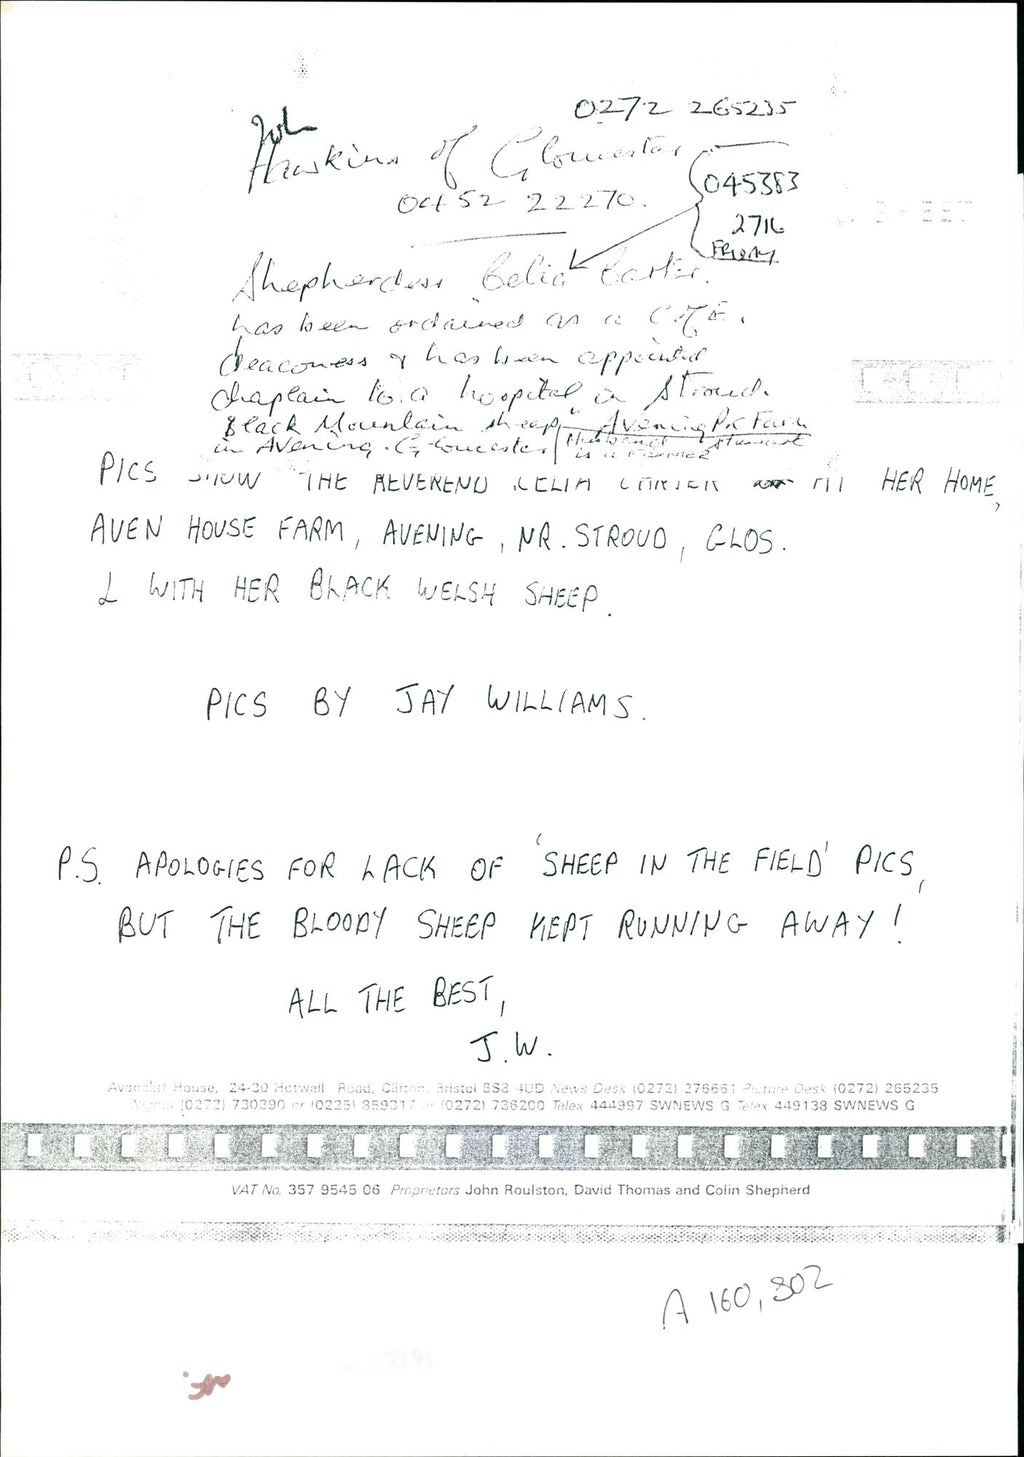 0272 265235
John
Hawkins of Gloucester
0452 22270.
045383
2716
FRIDAY
Shepherdess Celia Carter.
has been ordained as a C of E.
deaconess & has been appointed
chaplain to a hospital in Stroud.
Black Mountain sheep, Avening Pk Farm
in Avening. Gloucester Husband Stewart
is a Farmer
PICS SHOW THE REVEREND CELIA CARTER AT HER HOME,
AVEN HOUSE FARM, AVENING, NR. STROUD, GLOS.
& WITH HER BLACK WELSH SHEEP.
PICS BY JAY WILLIAMS.
P.S. APOLOGIES FOR LACK OF 'SHEEP IN THE FIELD' PICS,
BUT THE BLOODY SHEEP KEPT RUNNING AWAY!
ALL THE BEST,
J.W.
Avoncliff House, 24-30 Hotwell Road, Clifton, Bristol BS8 4UD News Desk (0272) 276661 Picture Desk (0272) 265235
Nights (0272) 730390 or (0225) 859317 or (0272) 736200 Telex 444997 SWNEWS G Telex 449138 SWNEWS G
VAT No. 357 9545 06 Proprietors John Roulston, David Thomas and Colin Shepherd
A 160,302